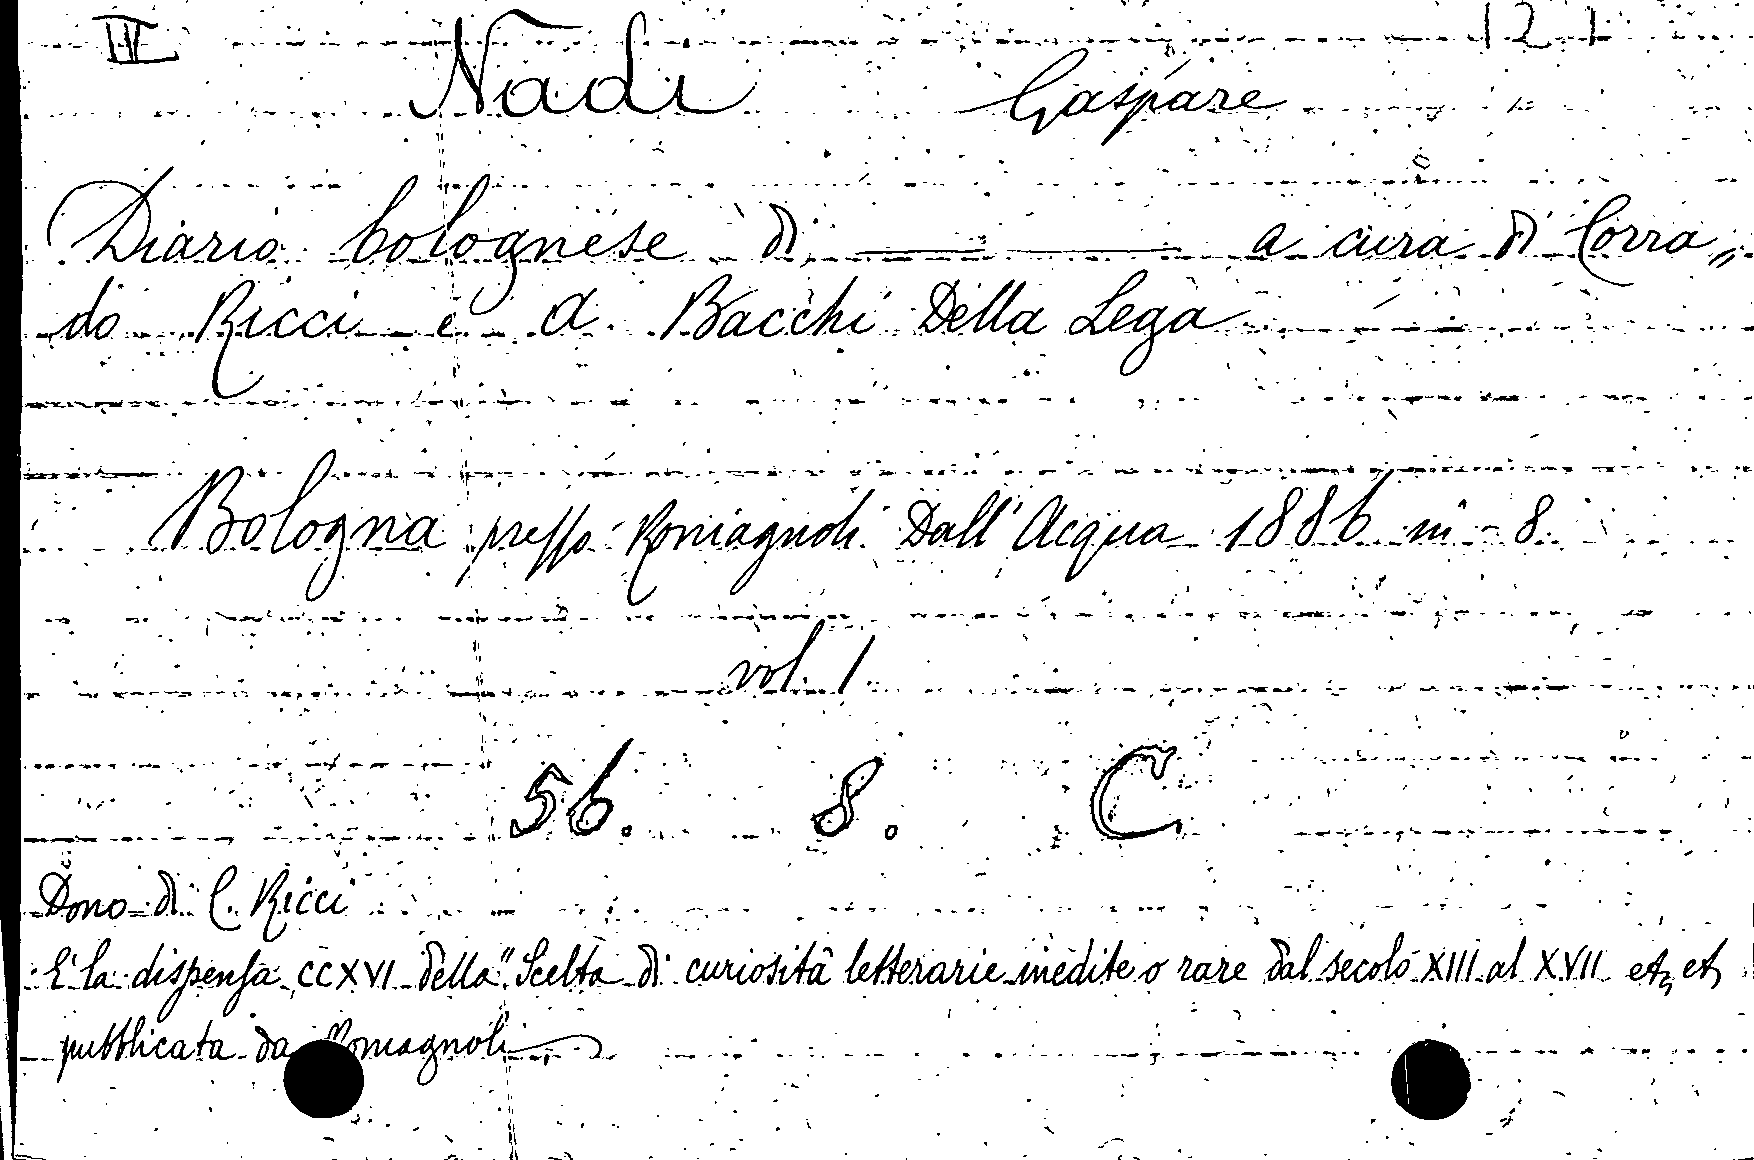 IV 121
Nadi Gaspare
Diario bolognese di ——— ——— a cura di Corra„
do Ricci e A. Bacchi Della Lega
Bologna presso Romagnoli Dall'Acqua 1886 in-8.
vol. 1
56. 8. C
Dono di C. Ricci
E' la dispensa CCXVI della "Scelta di curiosità letterarie inedite o rare dal secolo XIII al XVII etc, etc,
pubblicata da Romagnoli